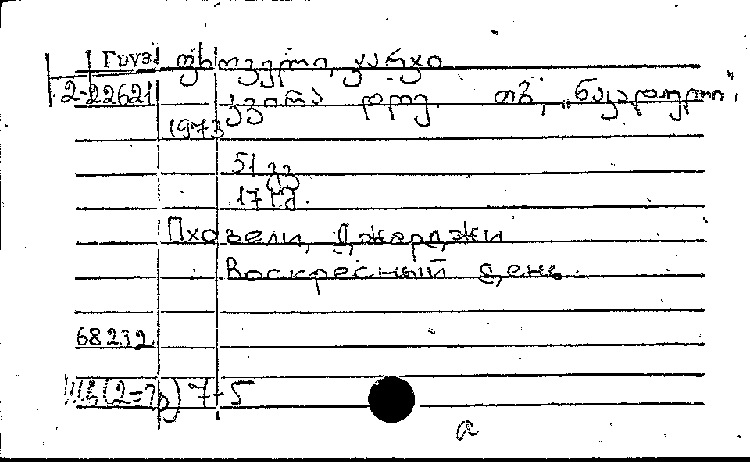 Груз. ფხოველი, ჯარჯი
2-22621 კვირა დღე. თბ., „ნაკადული",
1973
51 გვ.
17 სმ.
Пховели, Джарджи
Воскресный день.
68232
7-5
a